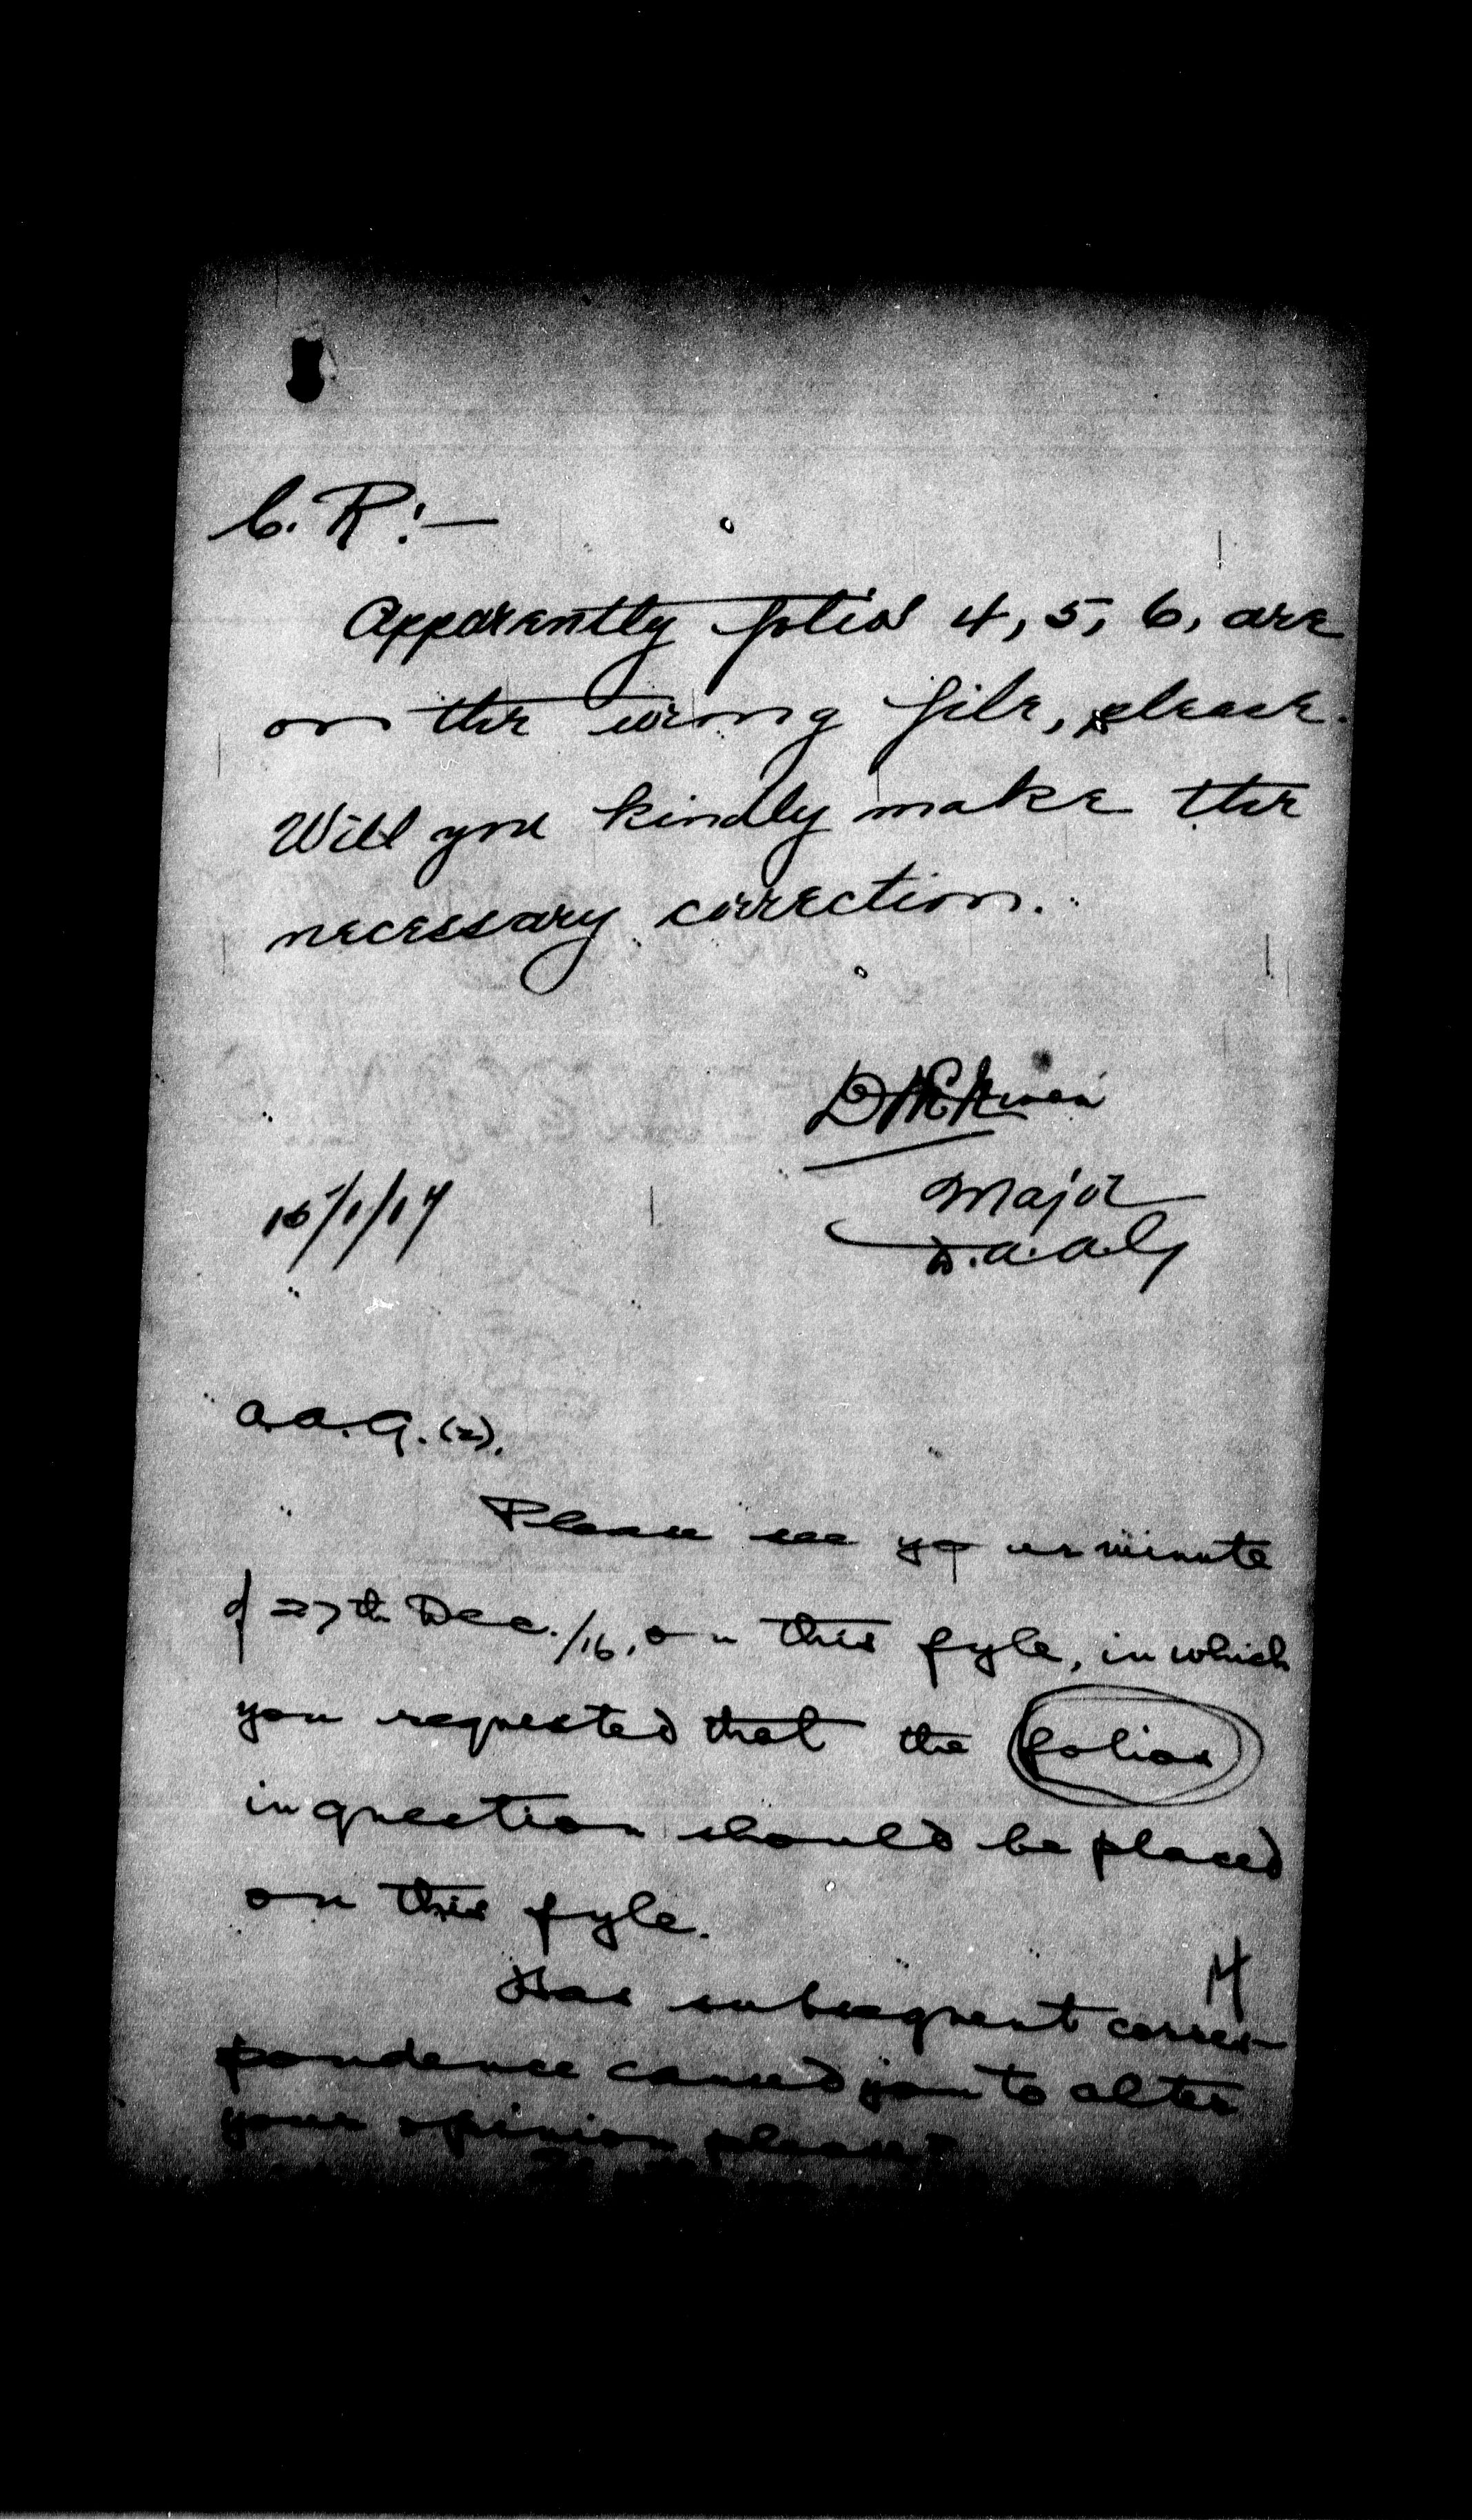 C. R:—
Apparently folios 4, 5, 6, are
on the wrong file, please.
Will you kindly make the
necessary correction.
Major
D.A.A.G
A.A.G. (2).
Please see your minute
of 27th Dec./16, on this fyle, in which
you requested that the folios
in question should be placed
on this fyle.
Has subsequent corres-
pondence caused you to alter
your opinion please?